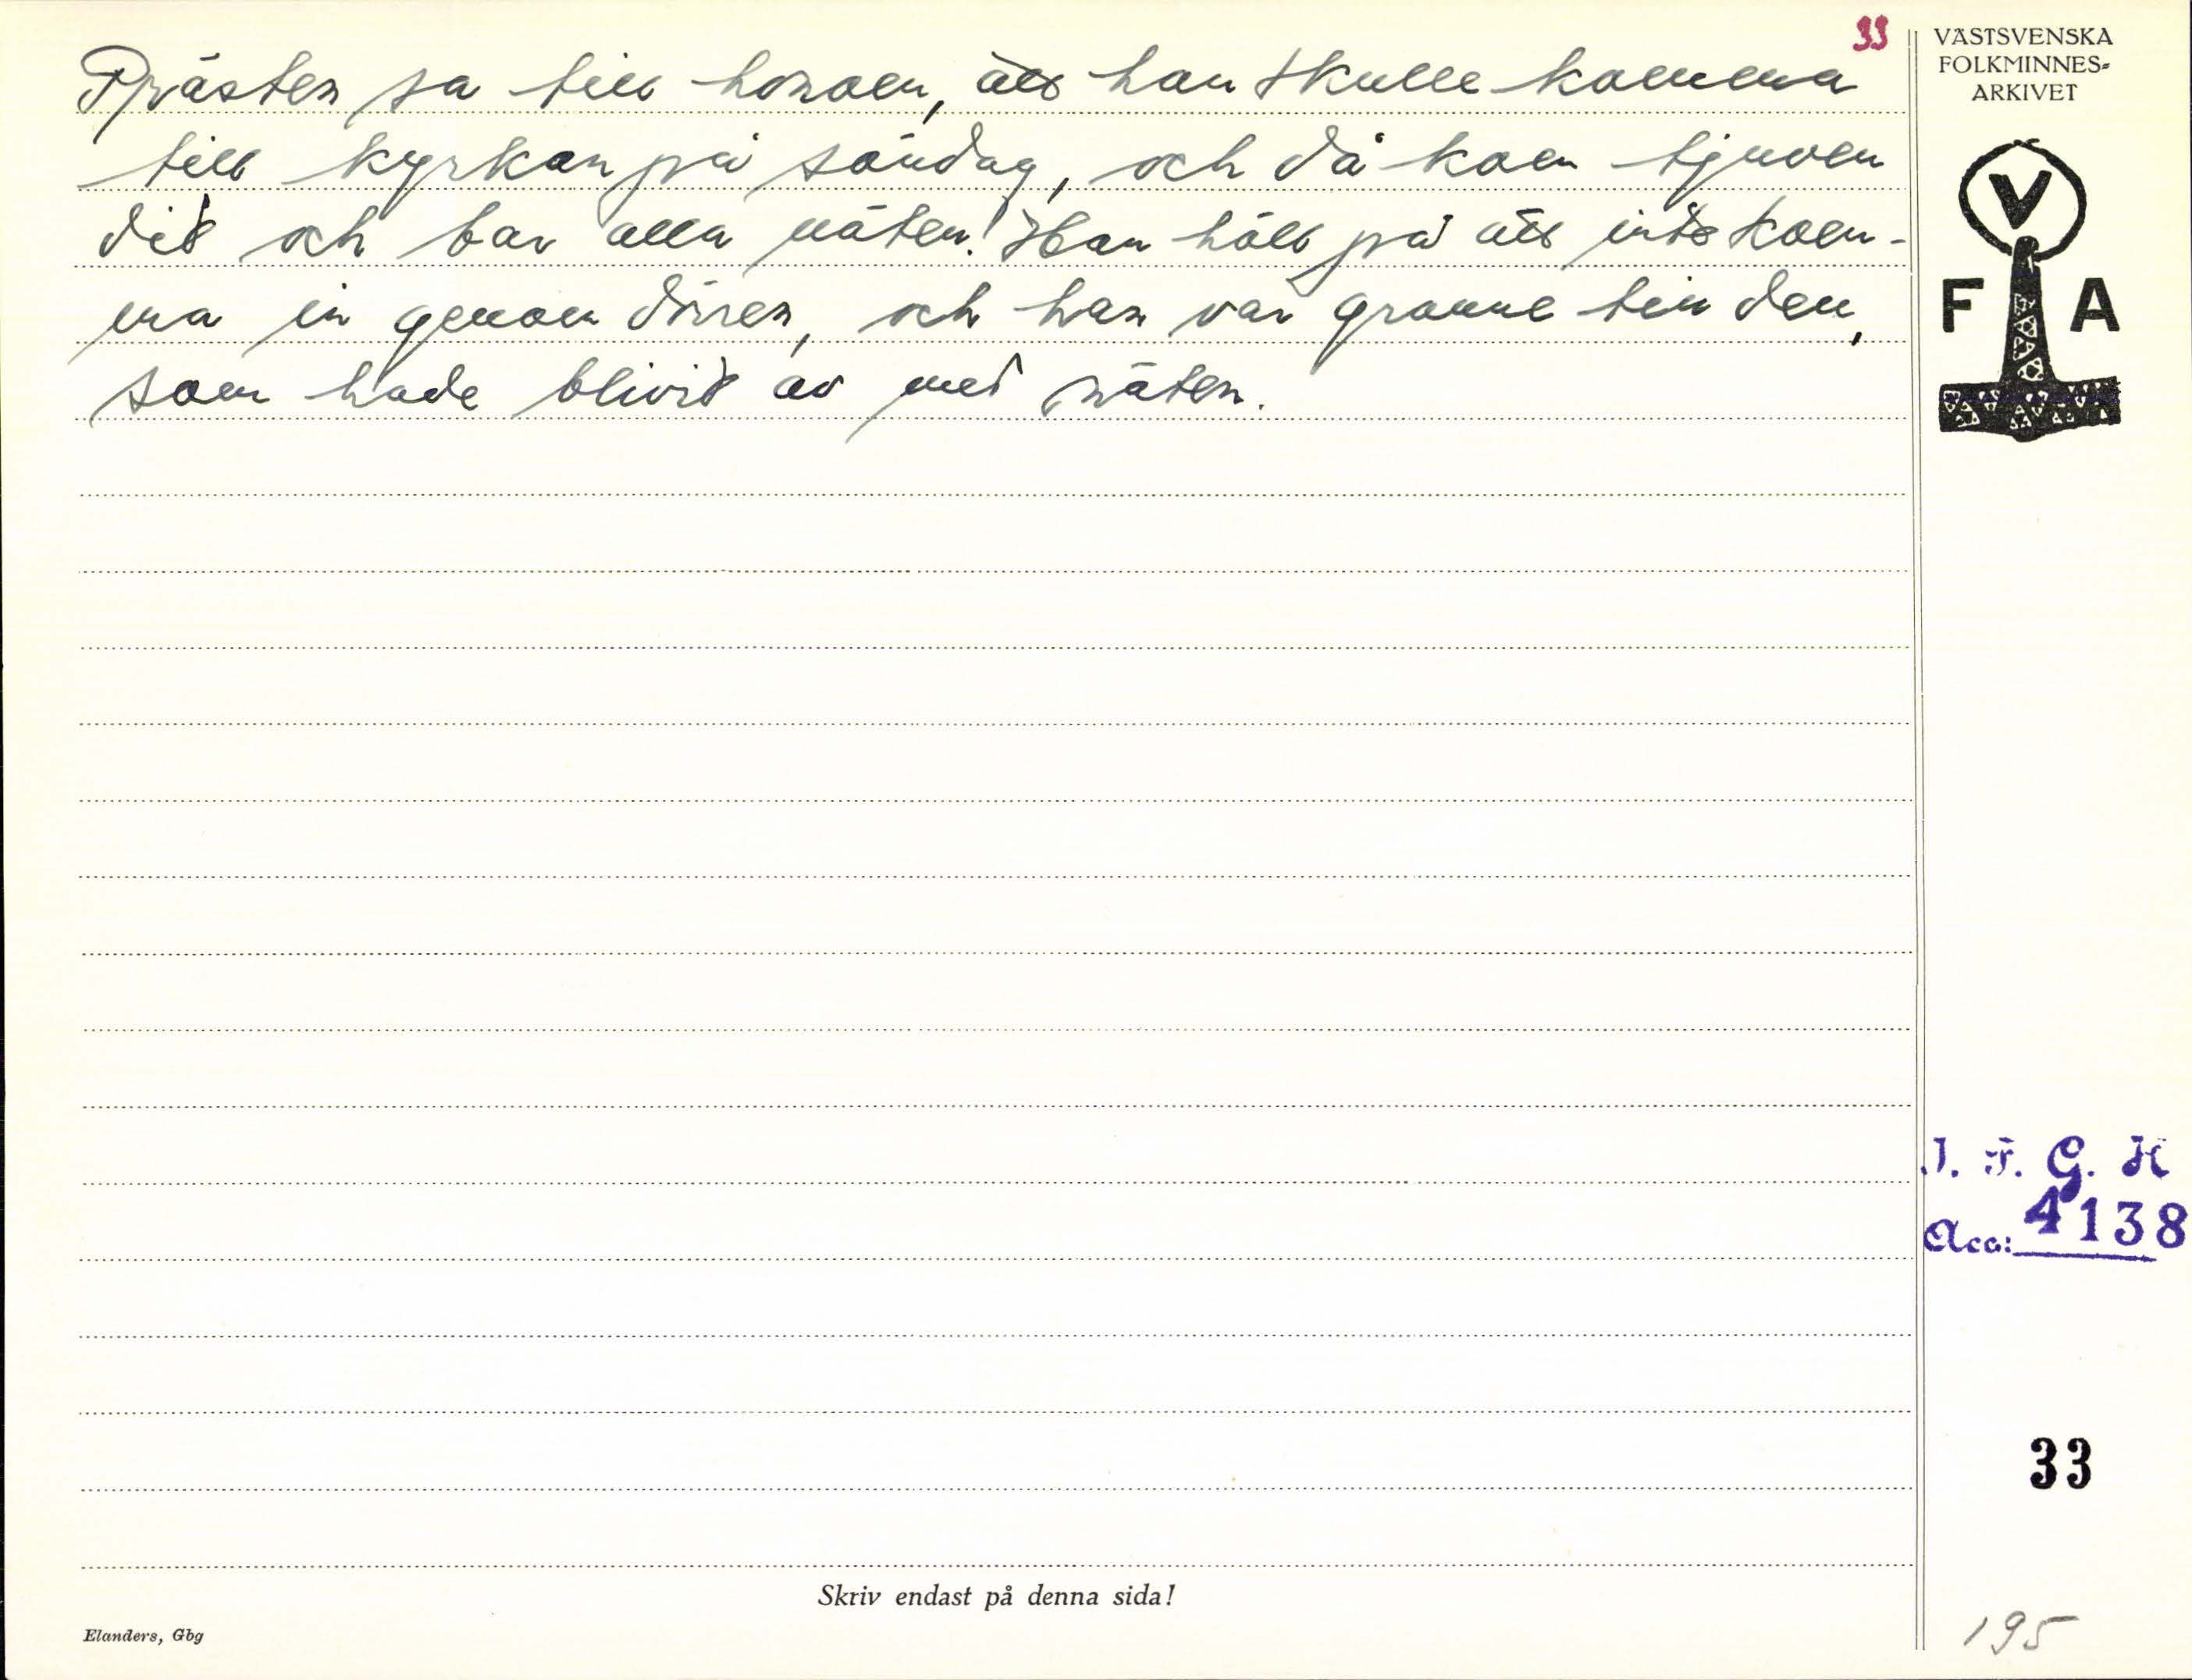 33
Prästen sa till honom, att han skulle komma
till kyrkan på söndag, och då kom tjuven
dit och bar alla näten! Han höll på att inte kom-
ma in genom dörren, och han var granne till den,
som hade blivit av med näten.
VÄSTSVENSKA
FOLKMINNES-
ARKIVET
V
F A
I. F. G. H
Acc: 4138
33
Skriv endast på denna sida!
Elanders, Gbg
195